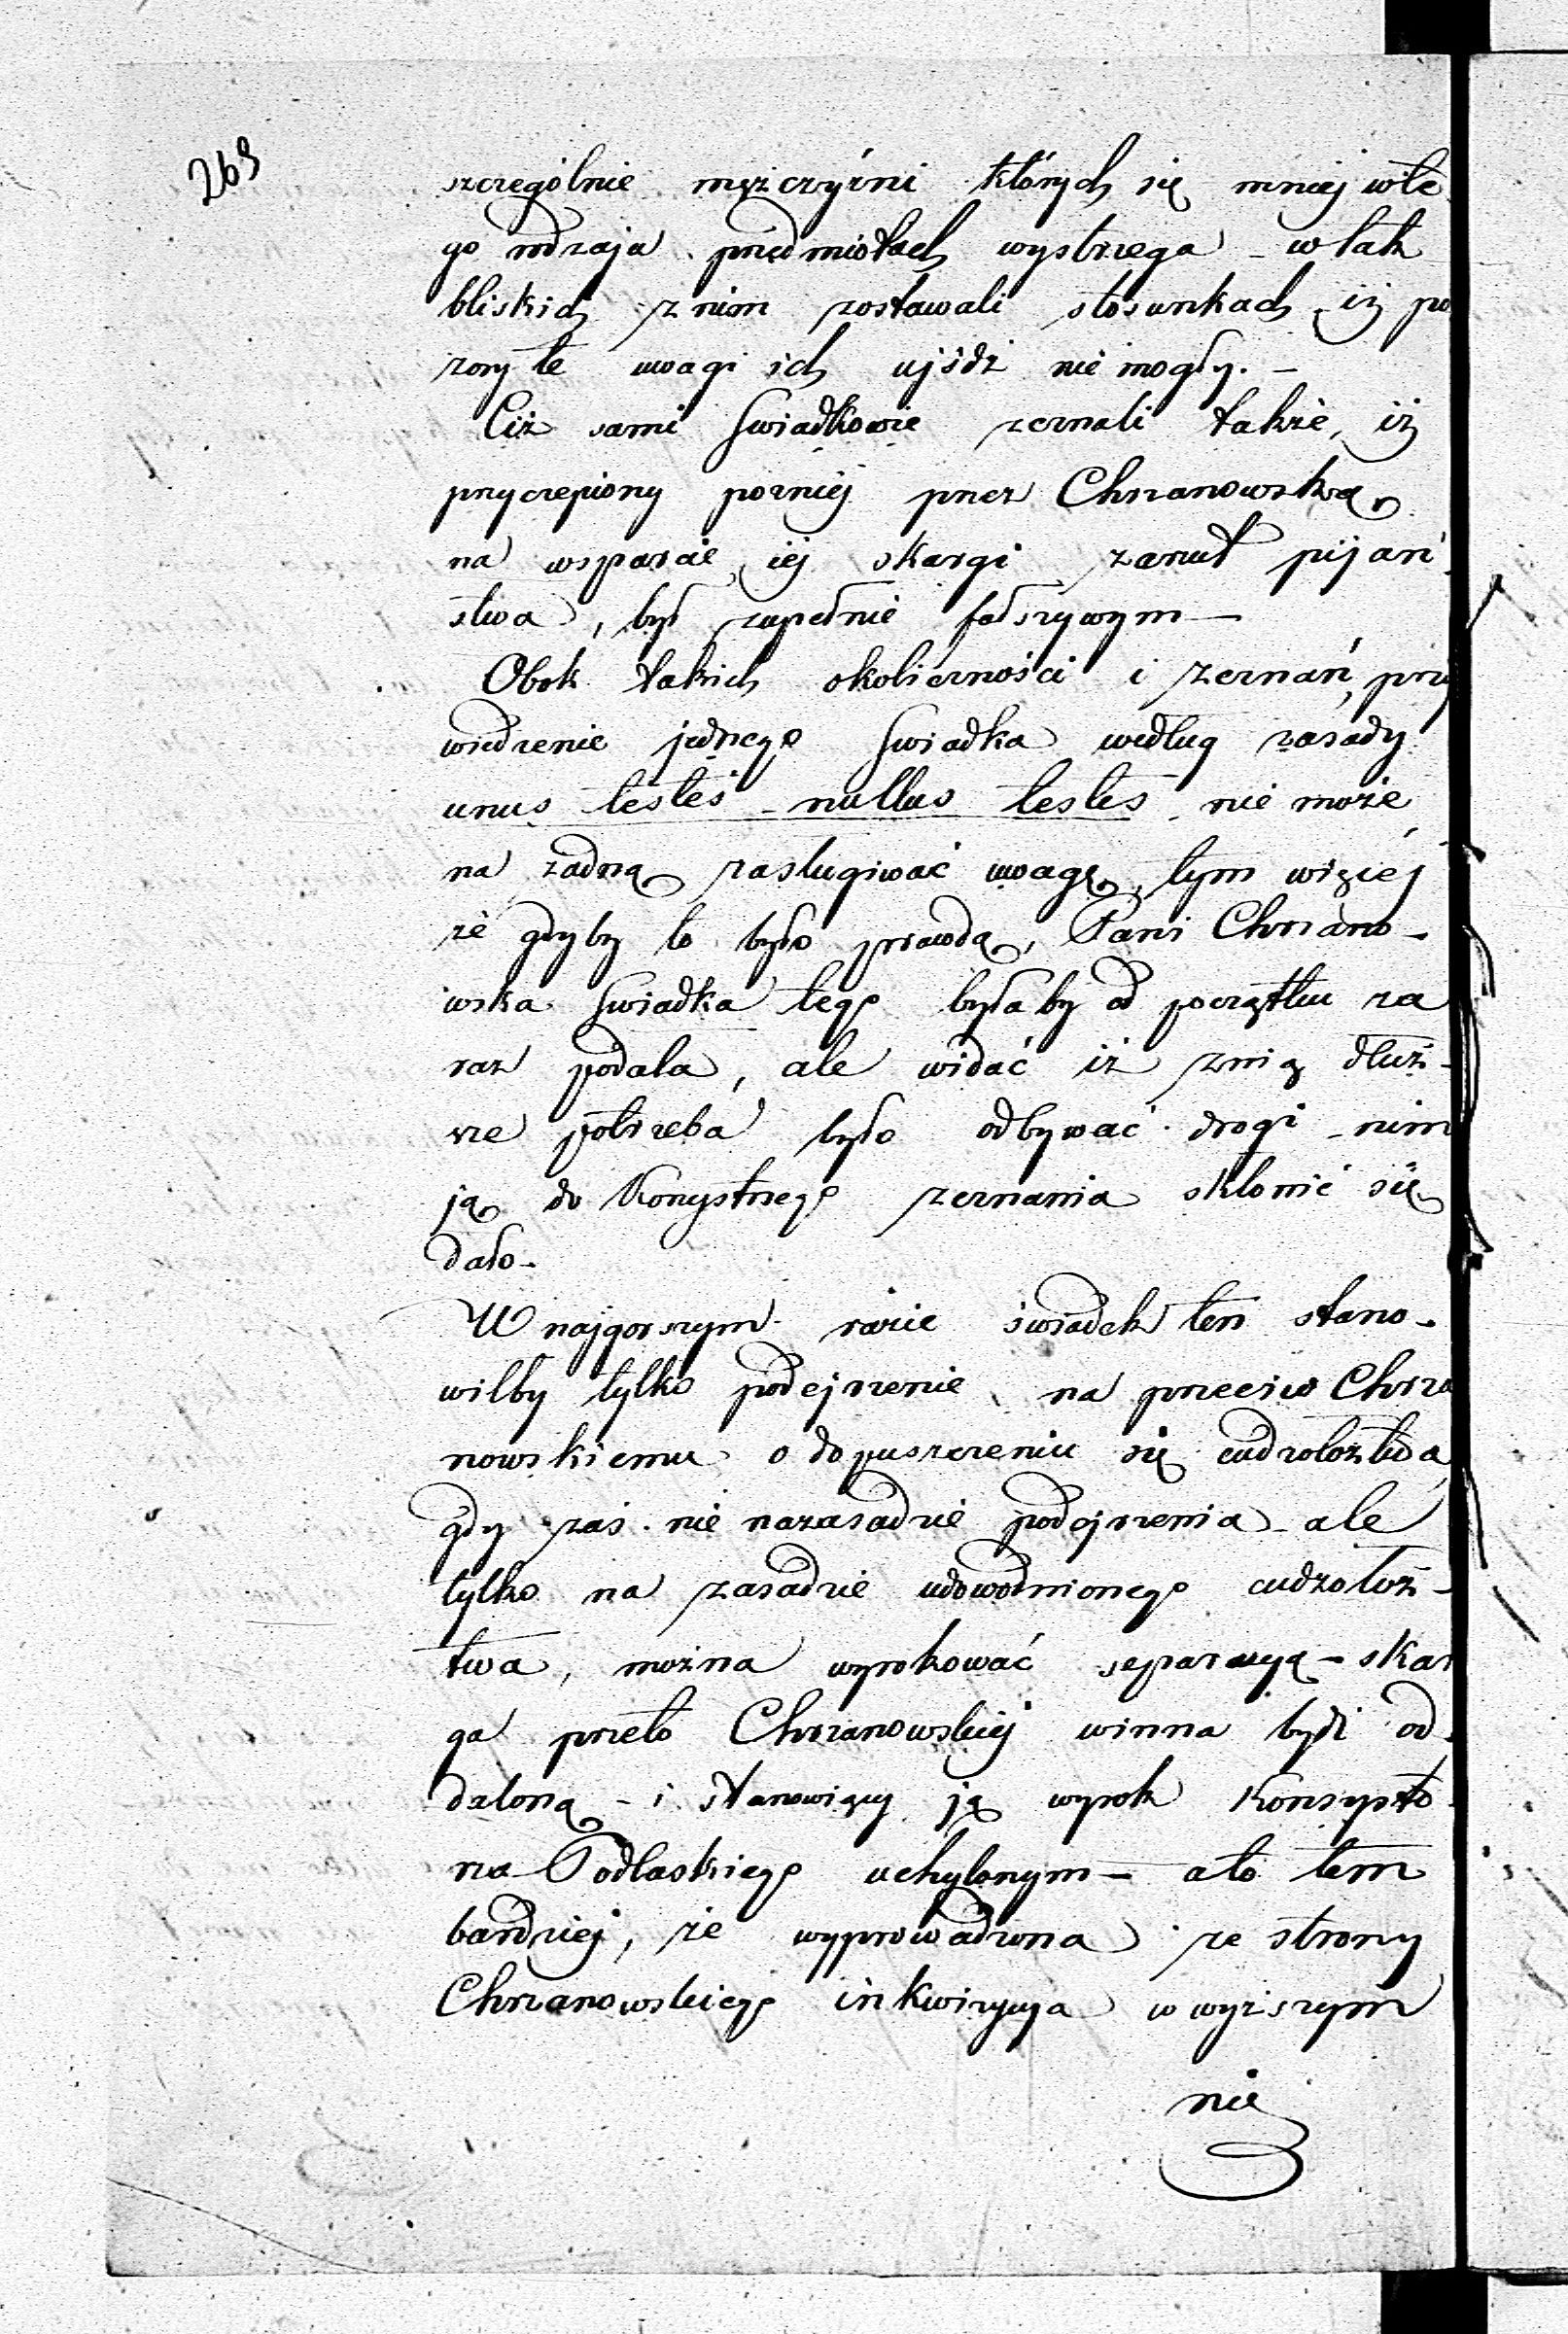 269
szczególnie mężczyźni których się mniej w te
go rodzaja przedmiotach wystrzega - w tak
bliskich z nim zostawali stosunkach iż po
zory te uwagi ich ujśdź nie mogły. -
Ciż sami Swiadkowie zeznali także, iż
przyczepiony pozniej przez Chrzanowską
na wsparcie iej skargi zarzut pijań
stwa, był zupełnie fałszywym -
Obok takich okoliczności i zeznań, przy
wiedzenie jednego Swiadka według zasady
unus testes - nullus testes nie może
na żadną zasługiwać uwagę, tym więcéj
że gdyby to było prawdą, Pani Chrzano -
wska Swiadka tego byłaby od początku za
raz podała, ale widać iż z nią dłuż -
sze potrzeba było odbywać drogi - nim
ją do Korzystnego zeznania skłonić się
dało -
W najgorszym razie świadek ten stano -
wiłby tylko podejrzenie na przeciw Chrza
nowskiemu o dopuszczeniu się cudzołoztwa
gdy zaś nie na zasadzie podejrzenia - ale
tylko na zasadzie udowodnionego cudzołoż -
twa, można wyrokować separacyą - skar
ga przeto Chrzanowskiéj winna bydź od
daloną - i stanowiący ją wyrok Konsysto
rza Podlaskiego uchylonym - a to tem
bardziej, że wyprowadzona ze strony
Chrzanowskiego inkwizycya w wyższym
nie